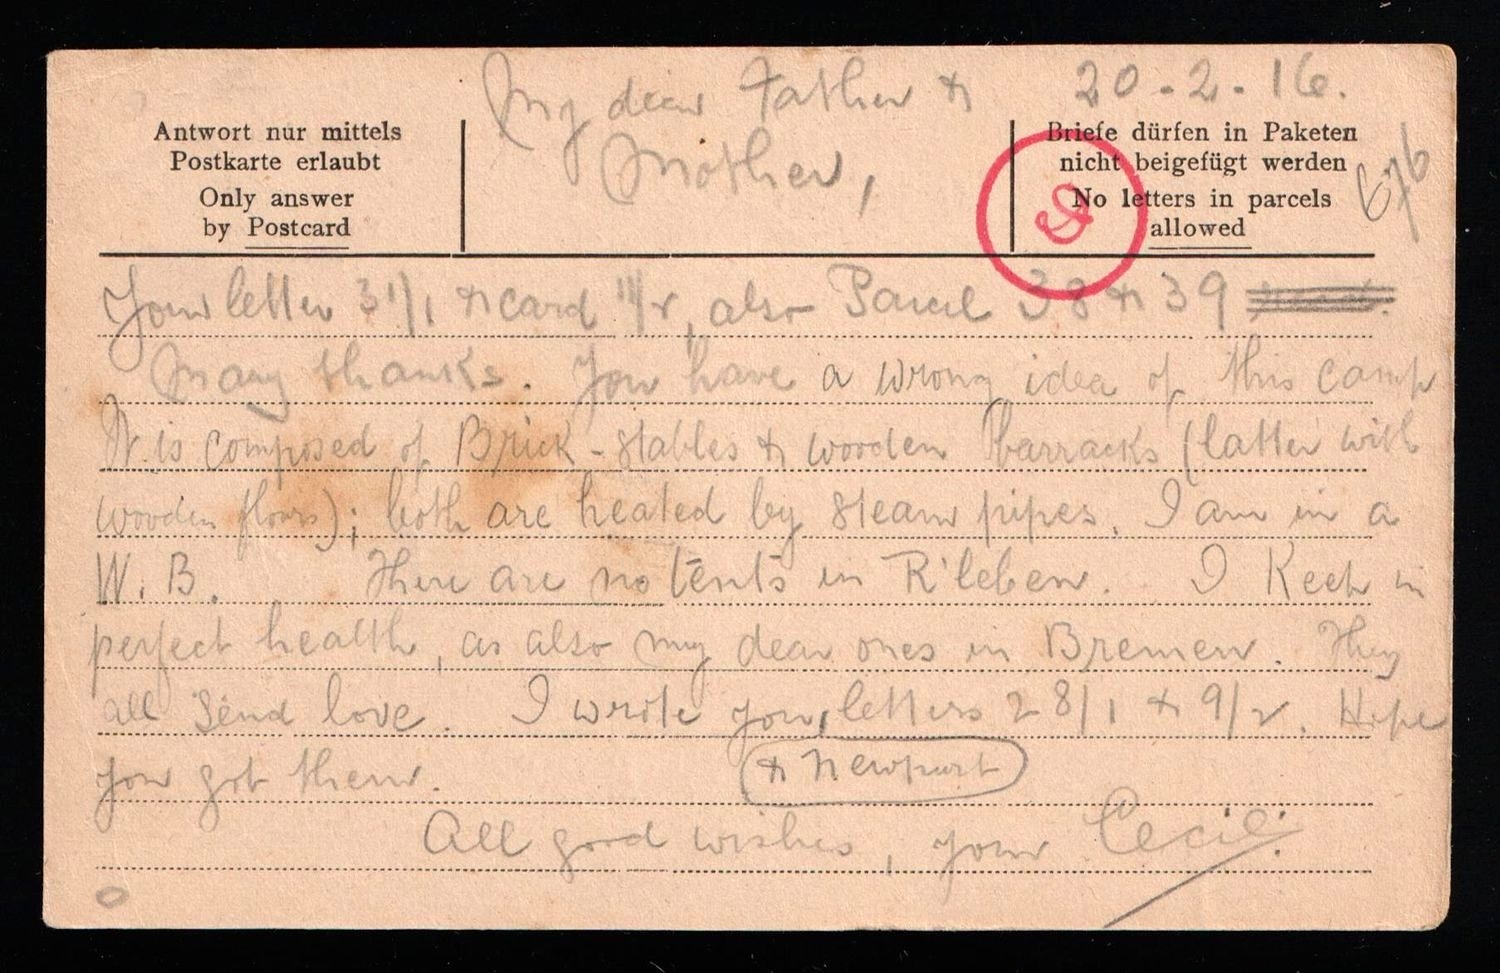 My dear Father &
Mother,
20-2-16.
Antwort nur mittels
Postkarte erlaubt
Only answer
by Postcard
Briefe dürfen in Paketen
nicht beigefügt werden
No letters in parcels
allowed
Your letter 31/1 & card 11/2, also Parcel 38 & 39
Many thanks. You have a wrong idea of this camp
It is composed of Brick-stables & wooden barracks (latter with
wooden floors); both are heated by steam pipes. I am in a
W. B. There are no tents in R'leben. I Keep in
perfect health, as also my dear ones in Bremen. They
all send love. I wrote you, letters 28/1 & 9/2. Hope
& Newport
you got them.
All good wishes, your Cecil.